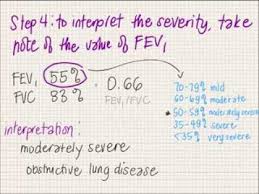 Step 4: to interpret the severity, take
note of the value of FEV₁
FEV₁ 55%
FVC 83%
0.66
FEV₁/FVC
70-79% mild
60-69% moderate
50-59% moderately severe
35-49% severe
<35% very severe
interpretation:
moderately severe
obstructive lung disease